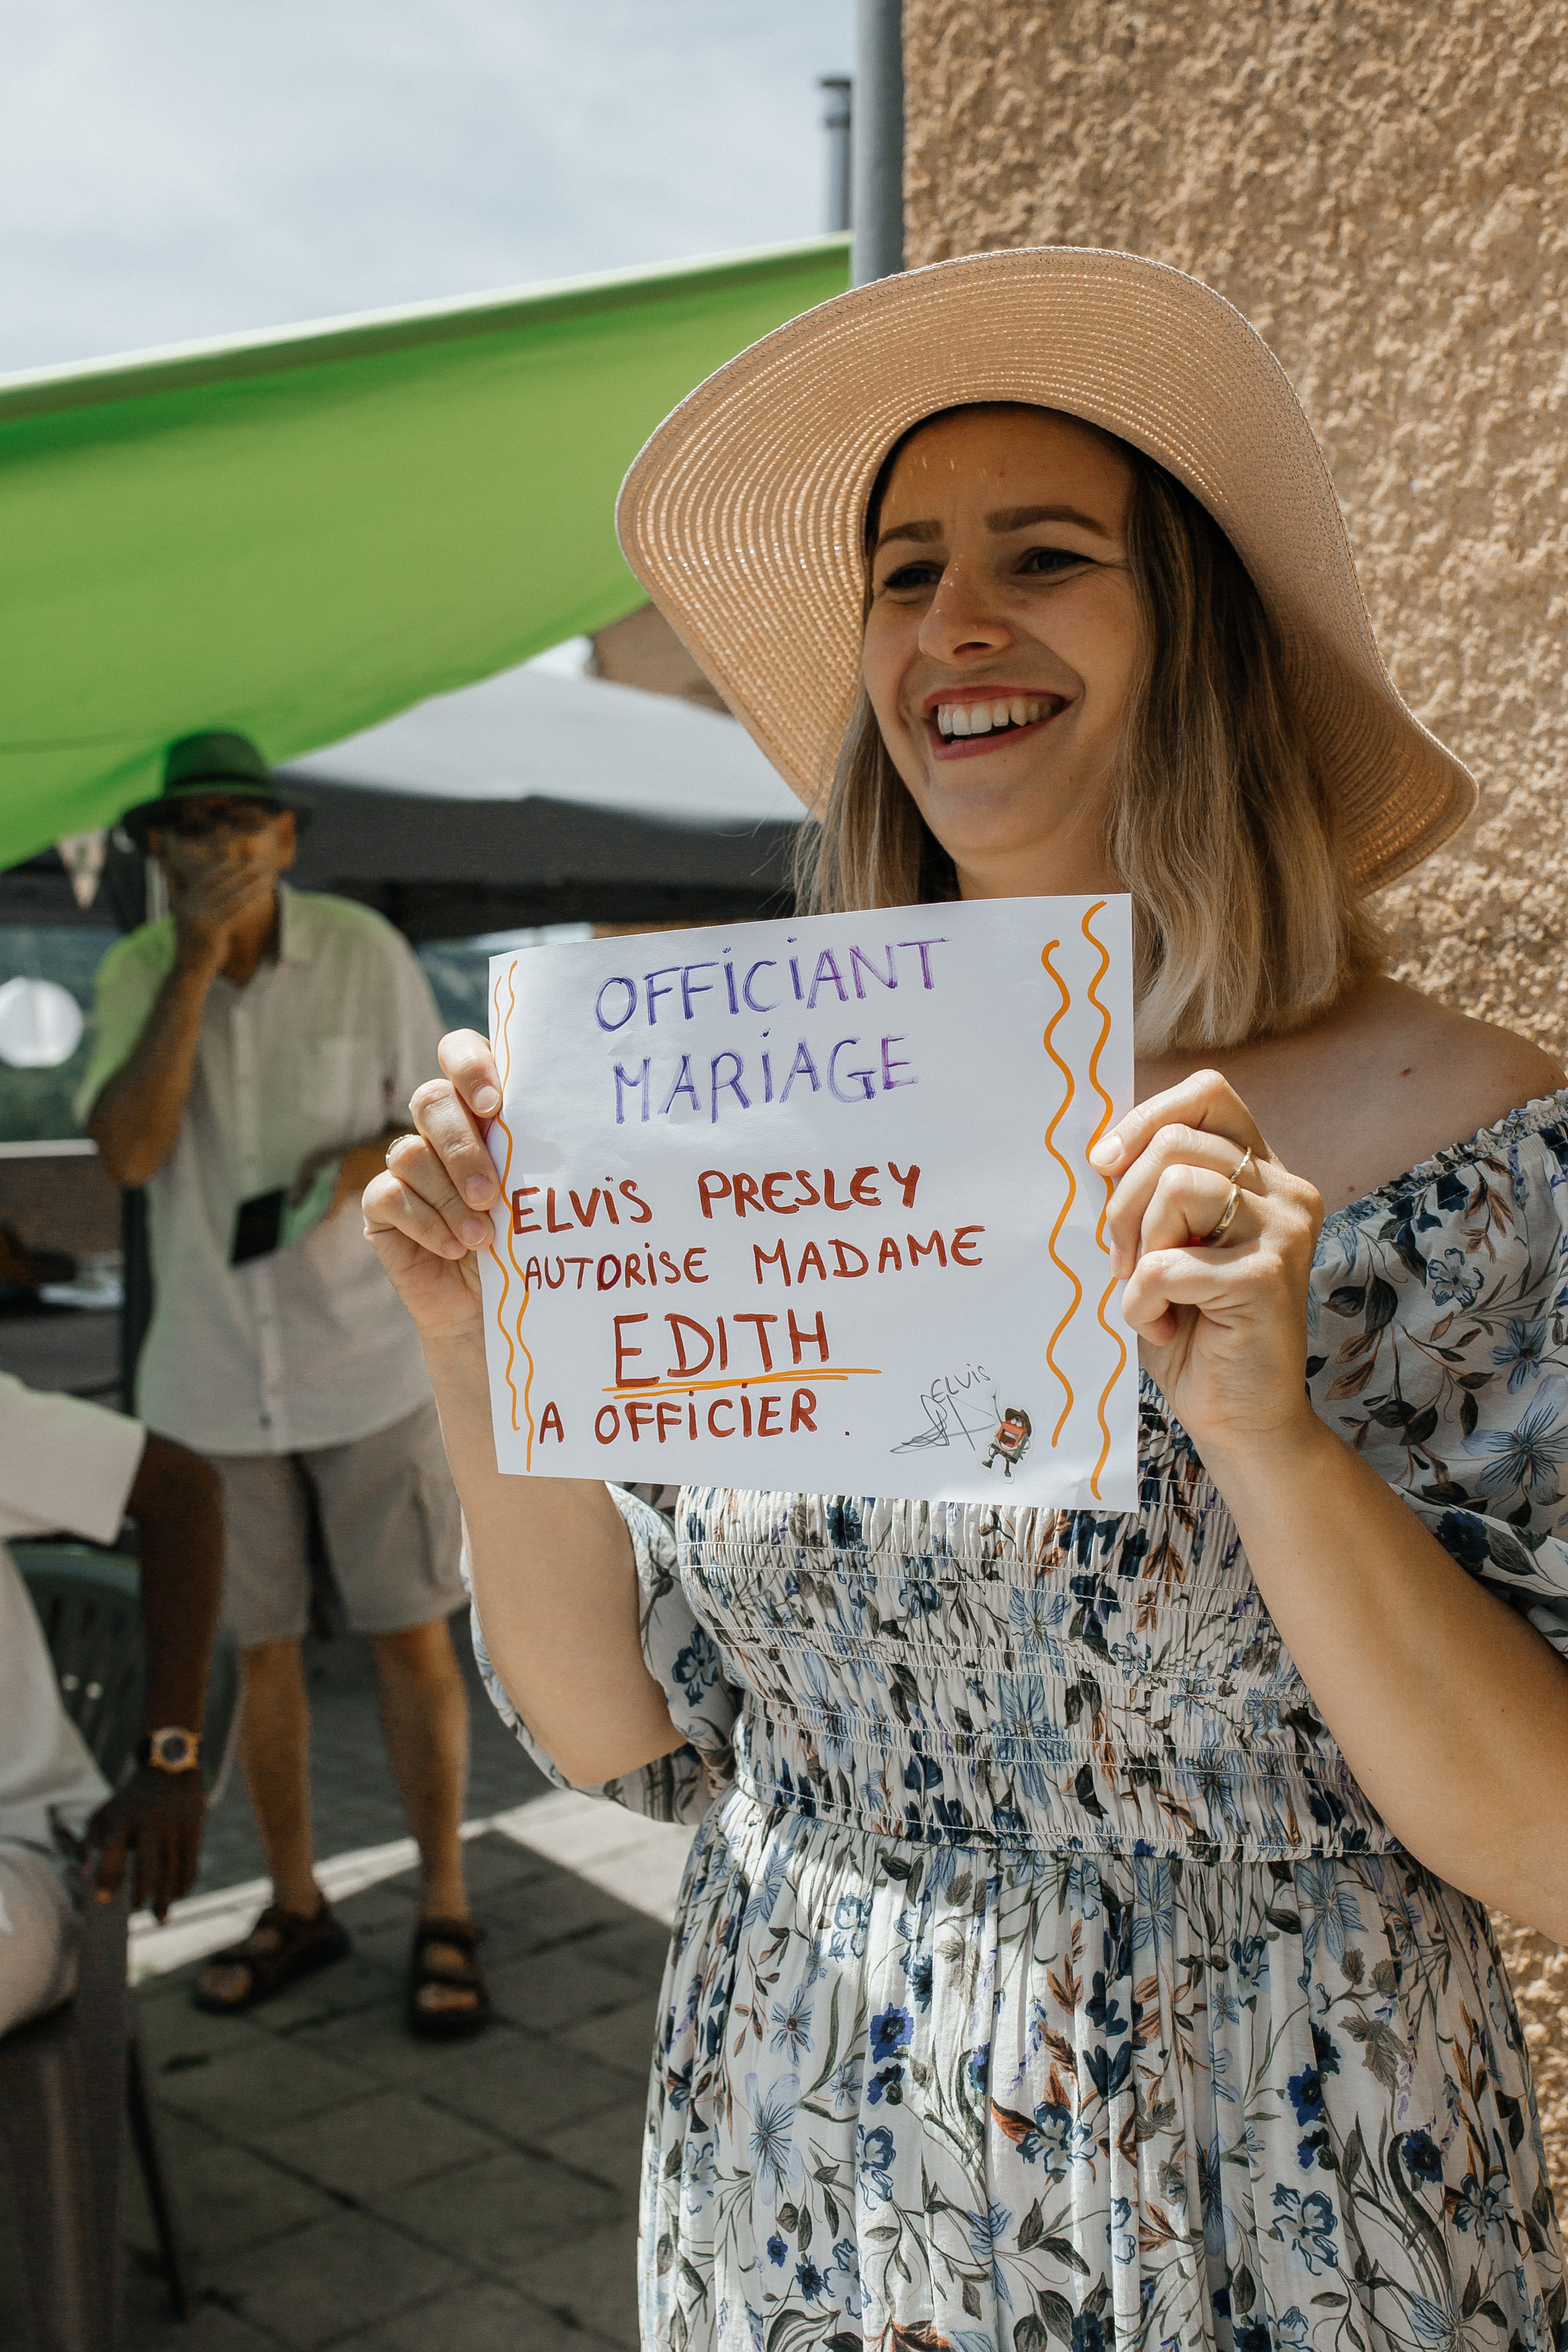 OFFICIANT
MARIAGE
ELVIS PRESLEY
AUTORISE MADAME
EDITH
A OFFICIER.
ELVIS